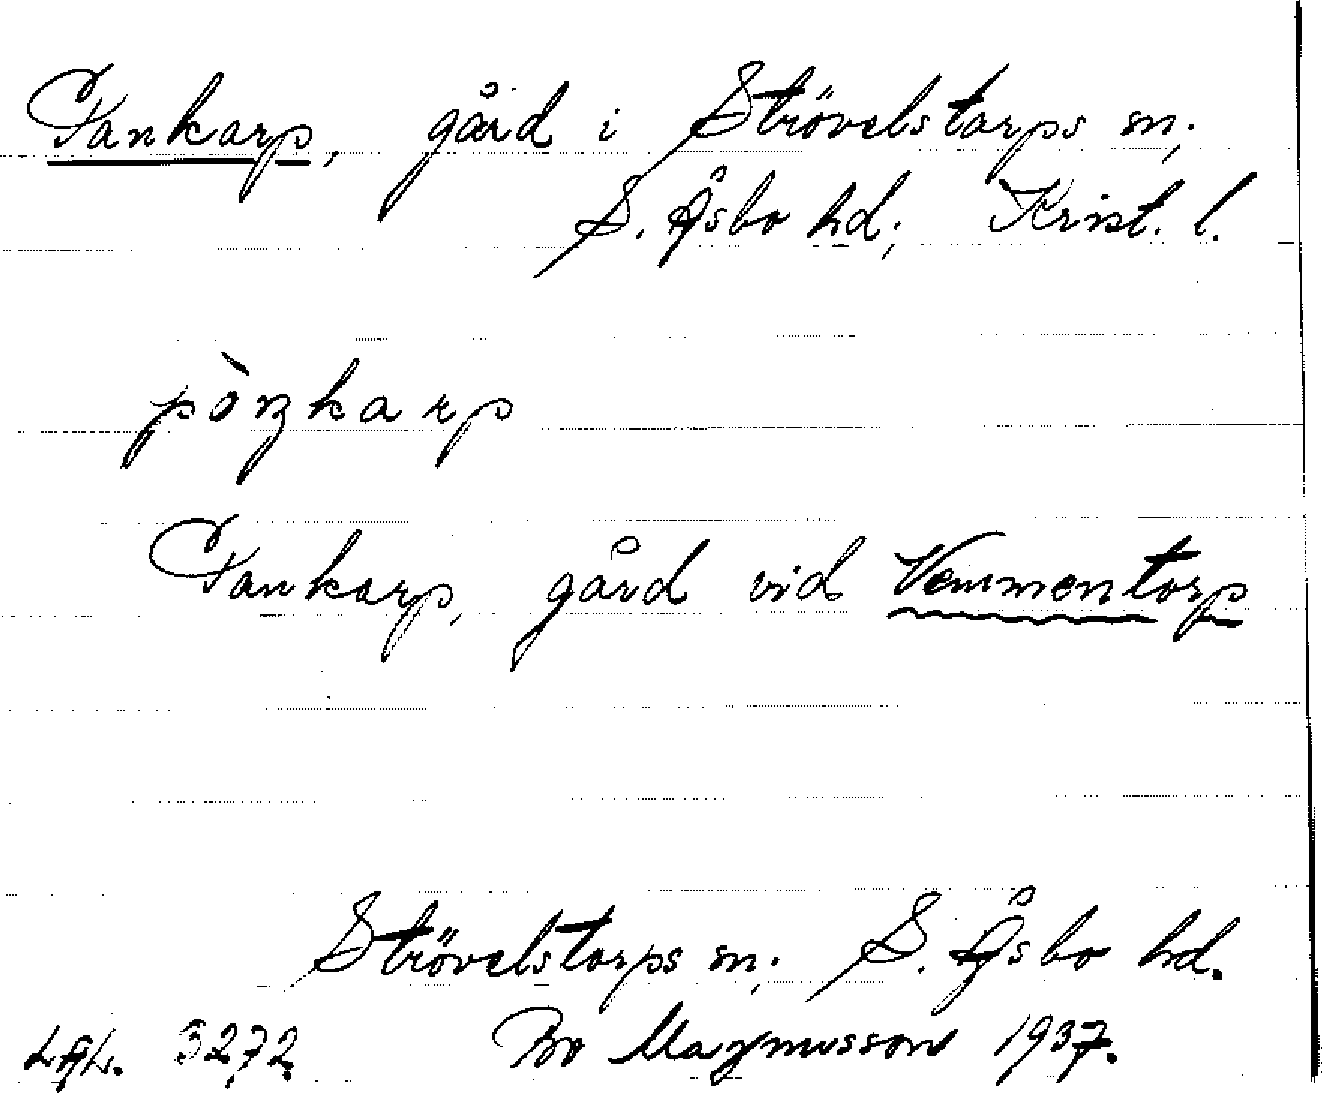 Tankarp, gård i Strövelstorps sn;
S. Åsbo hd; Krist. l.
Tankarp, gård vid Vemmentorp
Strövelstorps sn; S. Åsbo hd.
3272 Bo Magnusson 1937.